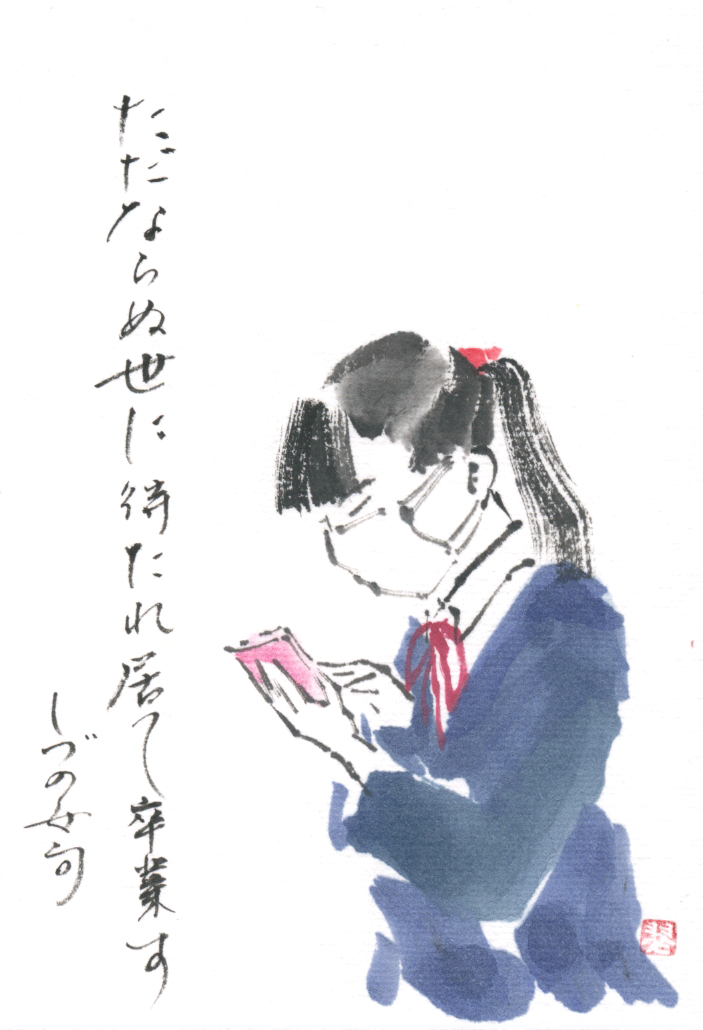 ただならぬ世に待たれ居て卒業す
しづの女句